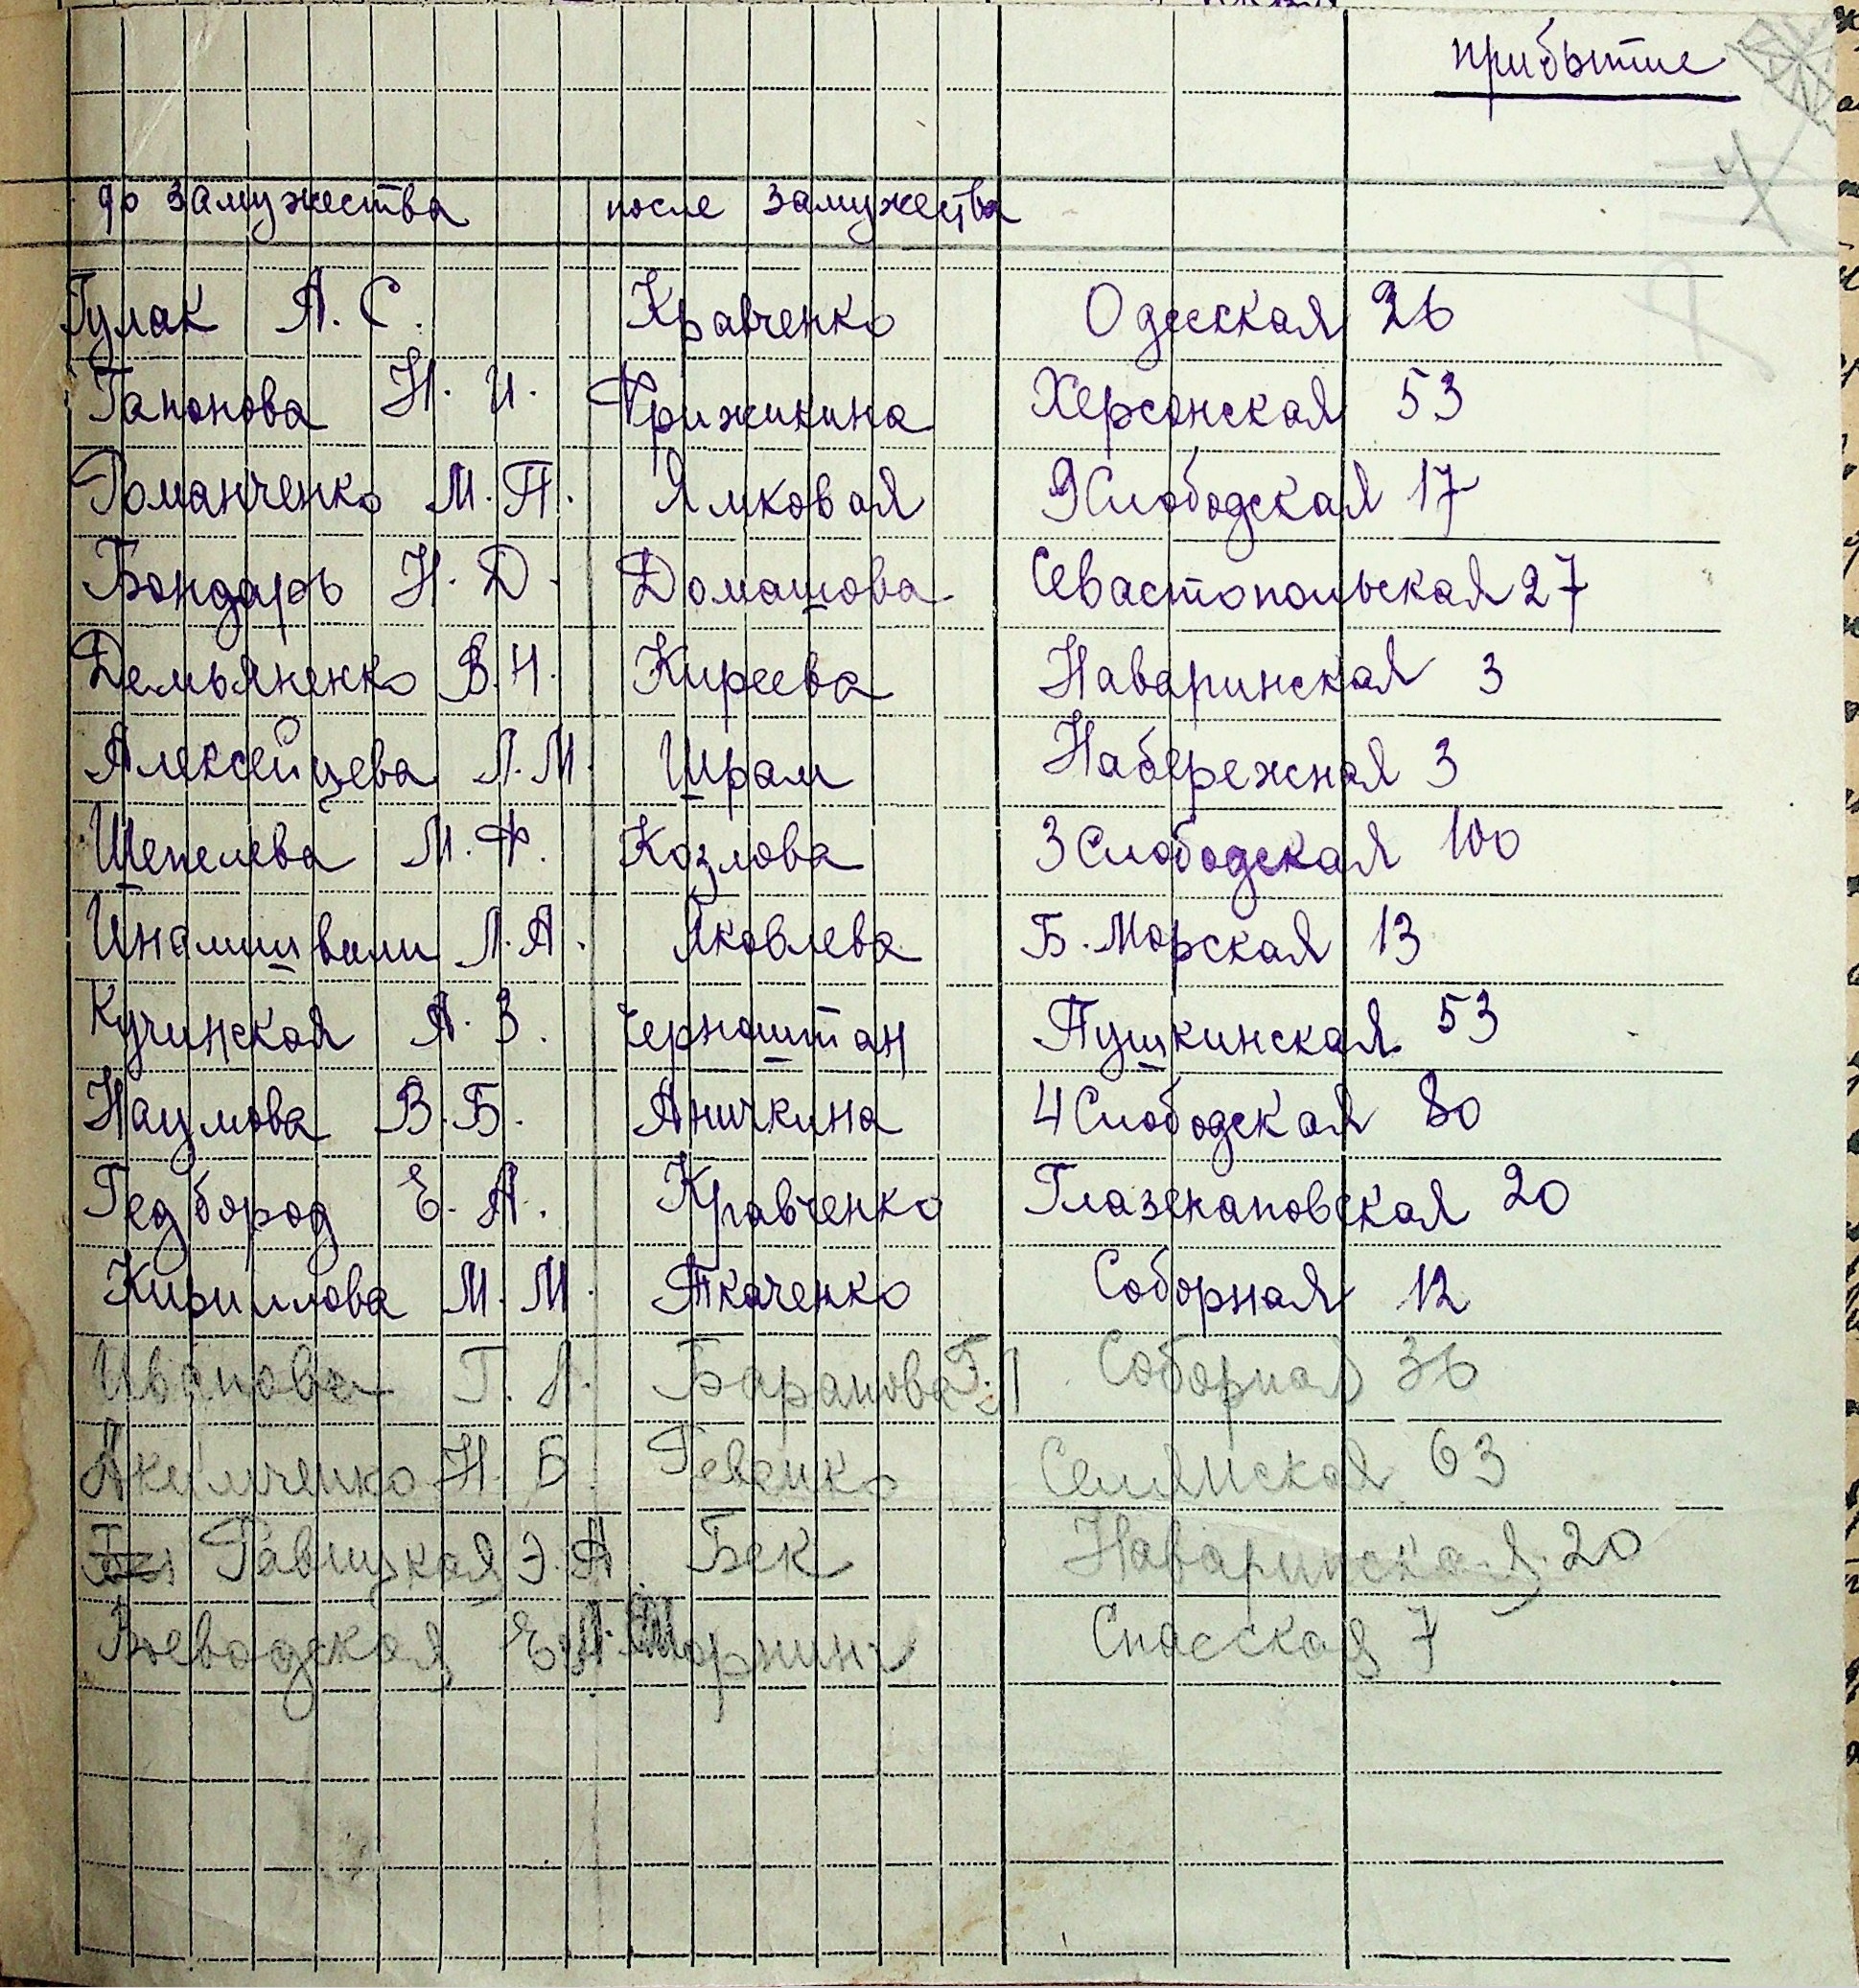 прибытие
до замужества после замужества
Гулак А. С. Кравченко Одесская 26
Гапонова Н. И. Фрижикина Херсонская 53
Романченко М. П. Ямковая 9 Слободская 17
Бондарь Н. Д. Домашова Севастопольская 27
Демьяненко В. Н. Киреева Наваринская 3
Алексейцева Л. М. Шрам Набережная 3
Шепелева М. Ф. Козлова 3 Слободская 100
Инамшвили Л. А. Яковлева Б. Морская 13
Кучинская А. З. Черноштан Пушкинская 53
Наумова В. Б. Аничкина 4 Слободская 80
Редбород Е. А. Кравченко Глазенаповская 20
Кириллова М. М. Ткаченко Соборная 12
Иванова Г. Л. Баранова Г. Л. Соборная 36
Акимченко Н. Б. Ревенко 63
Равицкая Э. А. Бек Наваринская 20
Воеводская Е. Л. Спасская 7